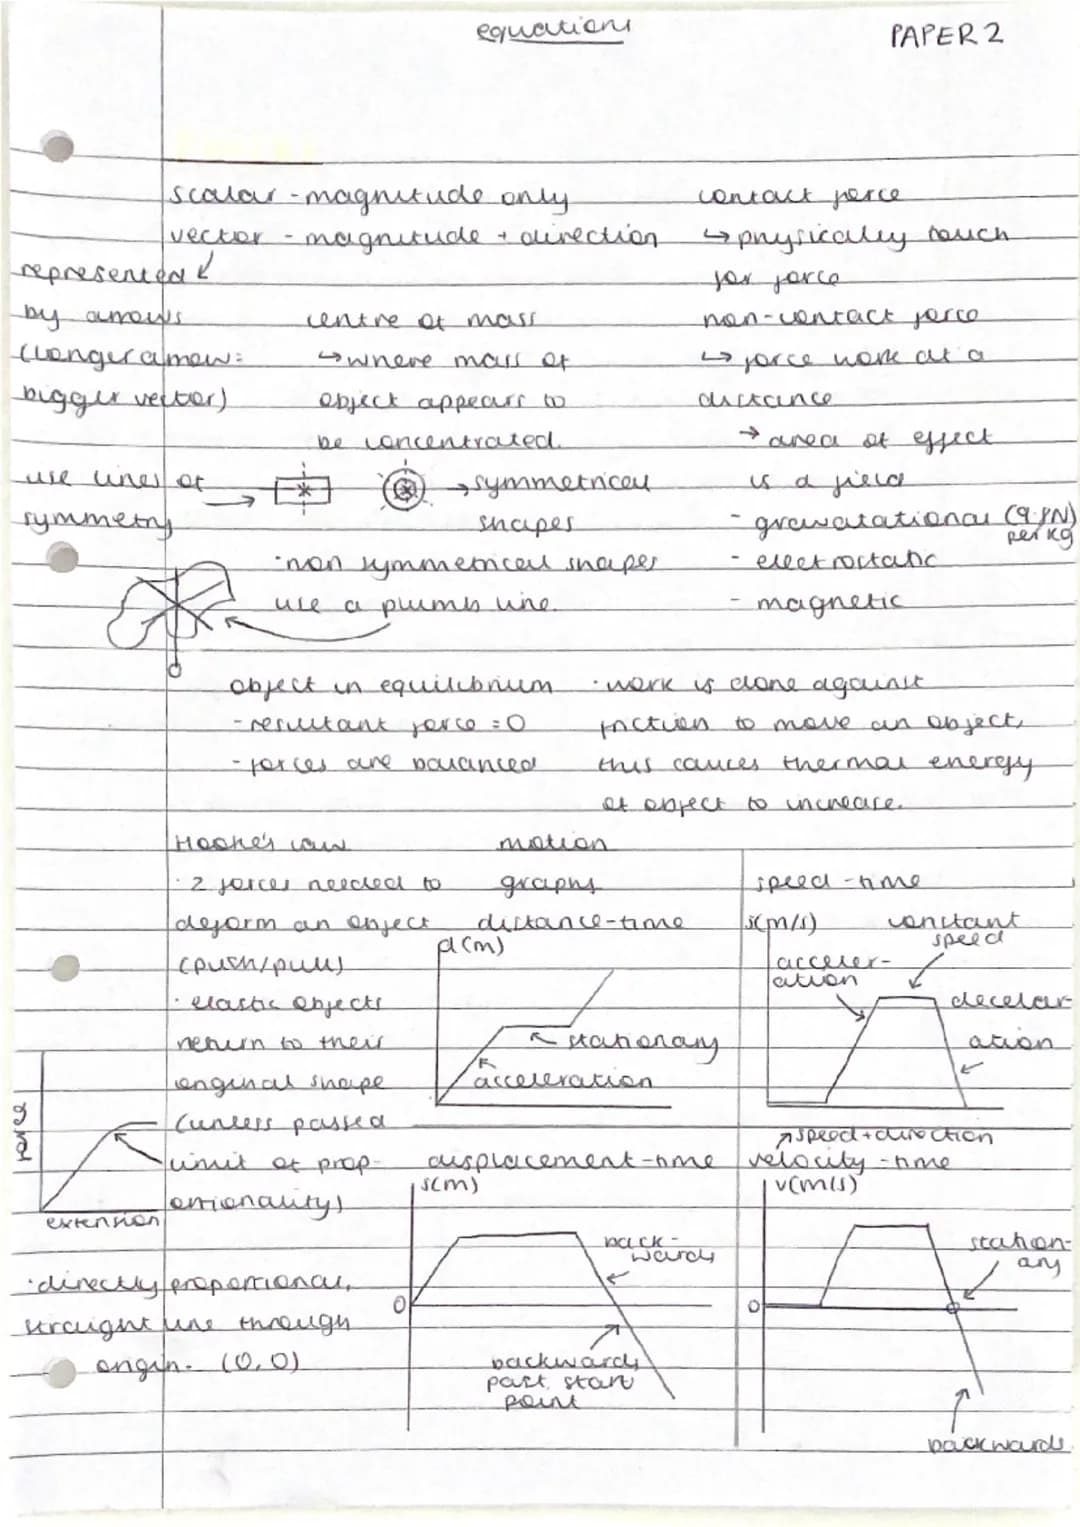 equations
PAPER 2
scalar - magnitude only
vector - magnitude + direction
represented
by arrows
(longer arrow =
bigger vector)
contact force
↳ physically touch
for force
non-contact force
↳ force work at a
distance
→ area of effect
is a field
- gravatational (9.8N)
per kg
- electrostatic
- magnetic
centre of mass
↳ where mass of
object appears to
be concentrated.
use lines of
symmetry
→ symmetrical
shapes
· non symmetrical shapes
use a plumb line.
object in equilibrium
- resultant force = 0
- forces are balanced
· work is done against
friction to move an object,
this causes thermal energy
of object to increase.
Hooke's law
· 2 forces needed to
deform an object
(push/pull)
· elastic objects
return to their
original shape
(unless passed
limit of prop-
ortionality)
force
extension
· directly proportional,
straight line through
origin. (0,0)
motion
graphs
distance-time
d(m)
stationary
acceleration
speed-time
s(m/s)
constant
speed
acceler-
ation
decelar-
ation
displacement-time
s(m)
back-
wards
0
backwards
past start
point
speed + direction
velocity-time
v(m/s)
station-
ary
0
backwards